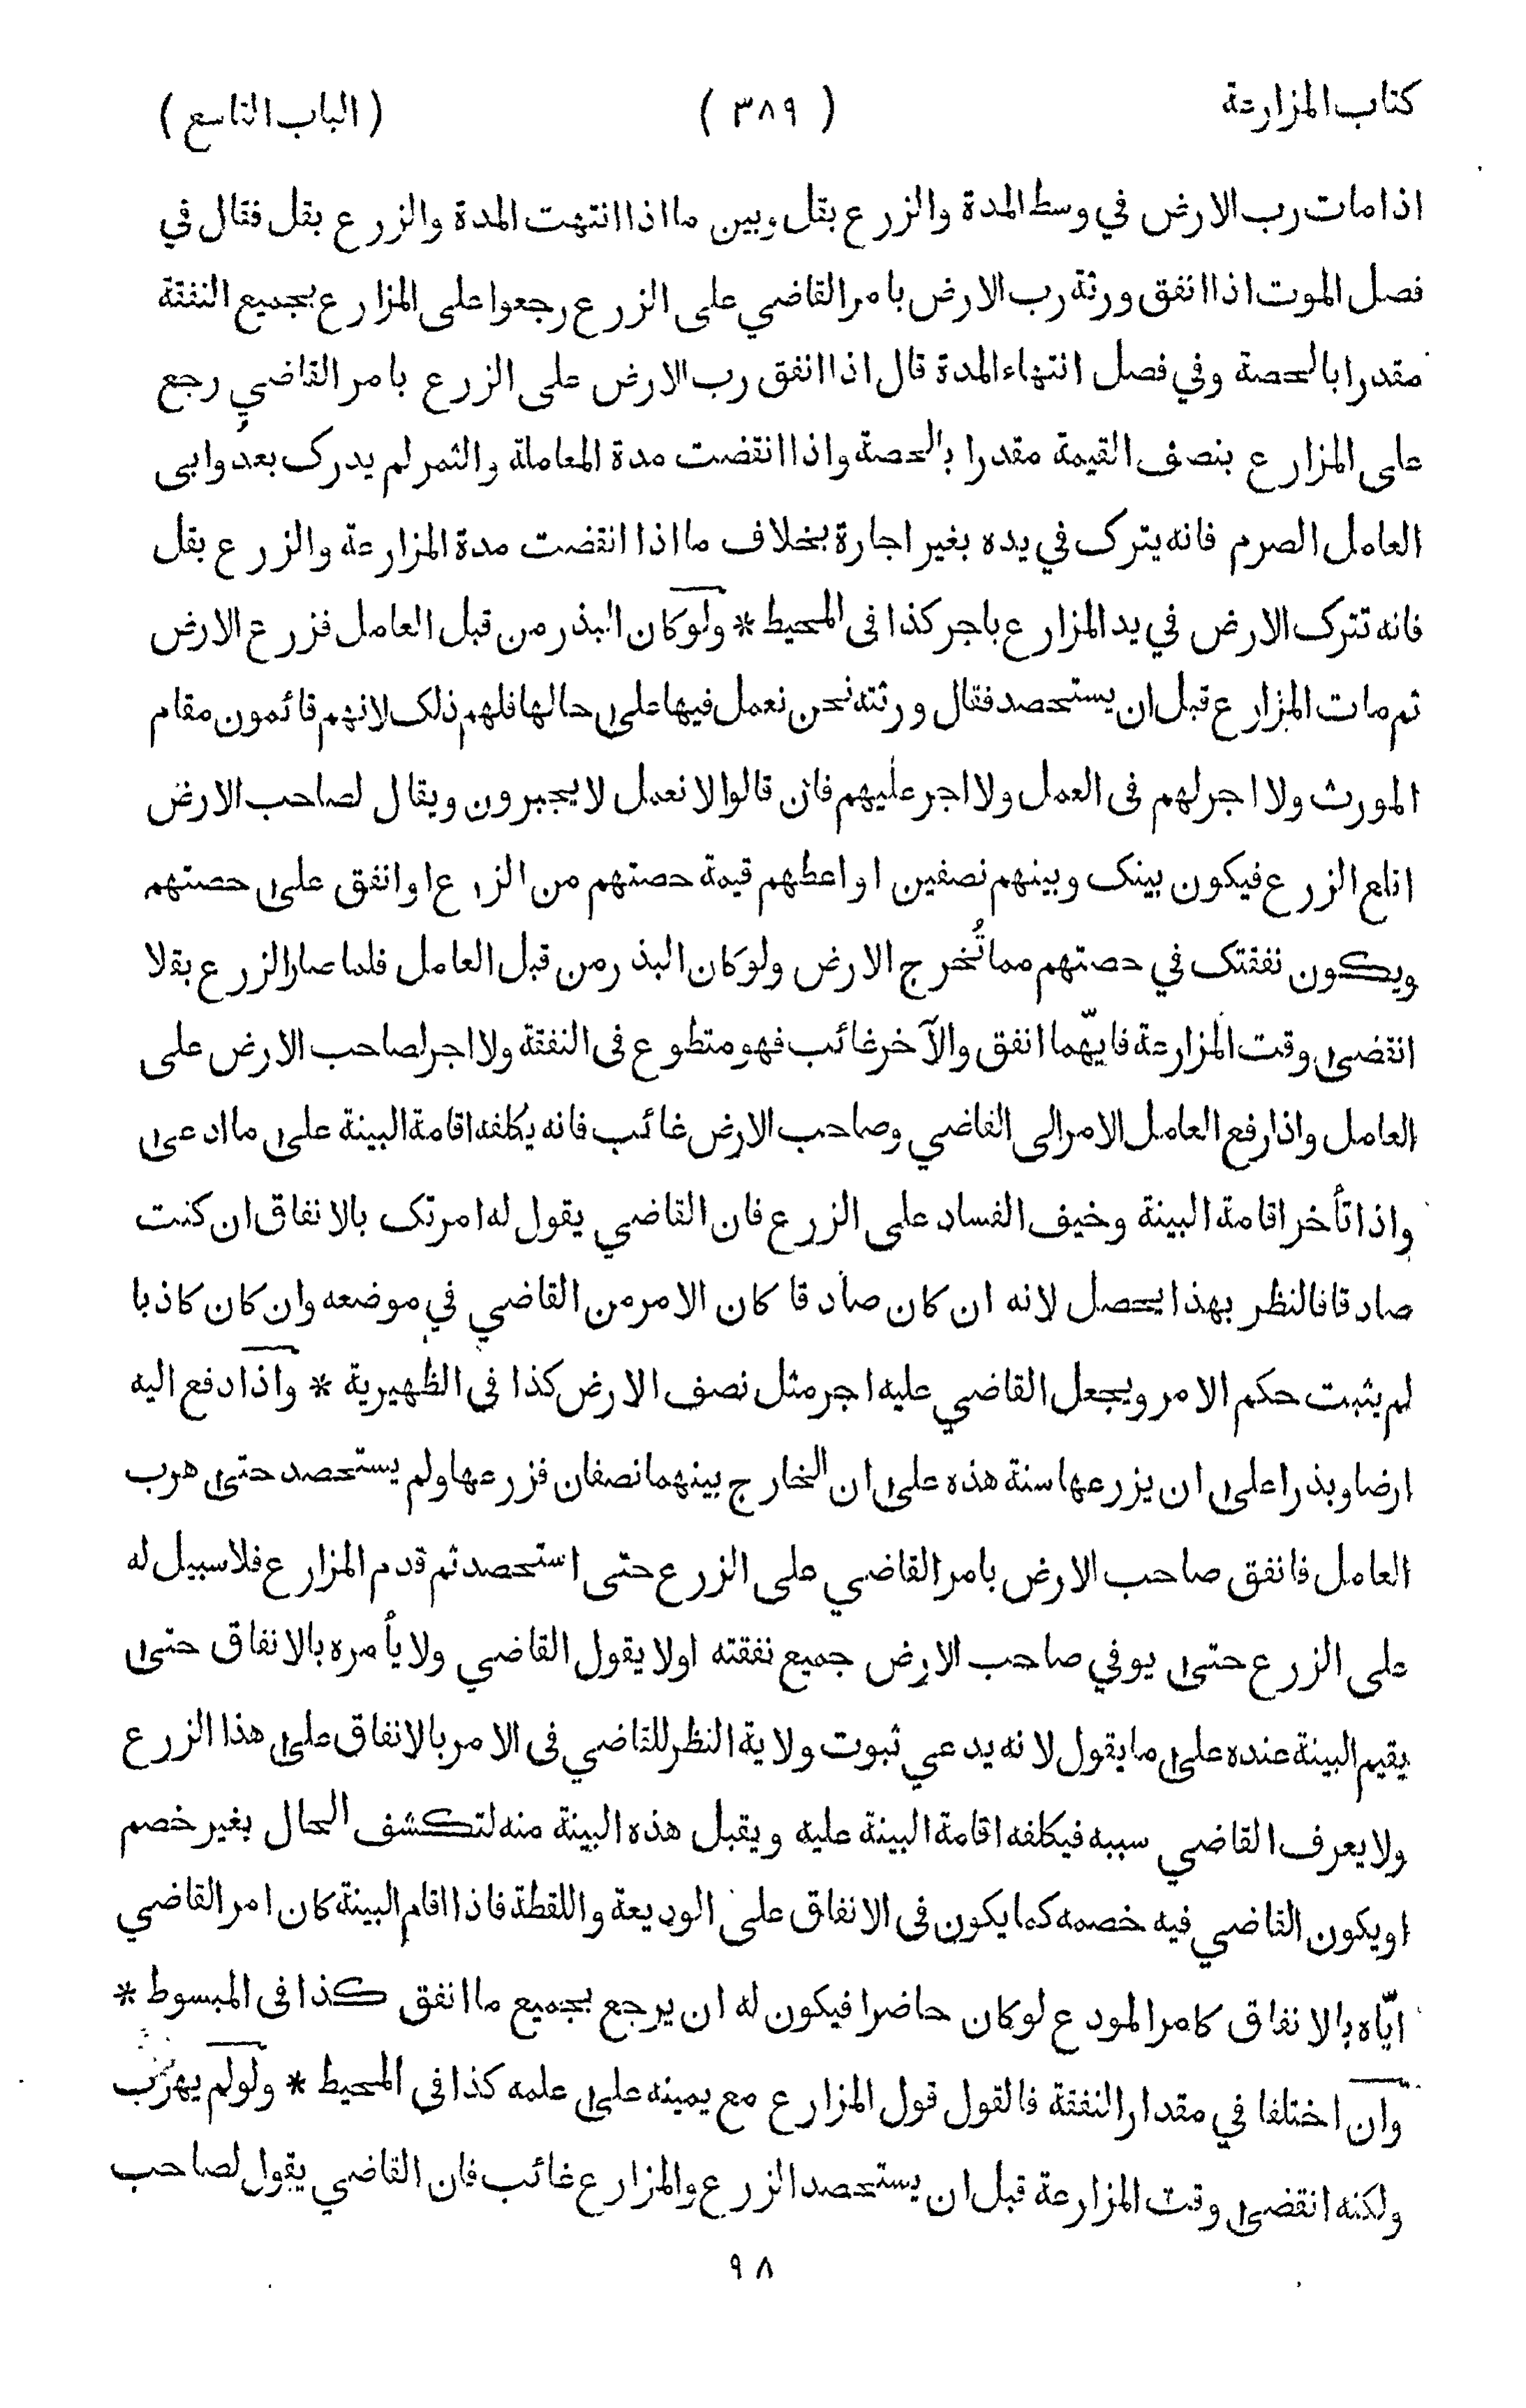 كتاب المزارعة ( ٣٨٩ ) ( الباب التاسع )
اذا مات رب الارض في وسط المدة والزرع بقل وبين ما اذا انتهت المدة والزرع بقل فقال في
فصل الموت اذا انفق ورثة رب الارض بامر القاضي على الزرع رجعوا على المزارع بجميع النفقة
مقدرا بالحصة وفي فصل انتهاء المدة قال اذا انفق رب الارض على الزرع بامر القاضي رجع
على المزارع بنصف القيمة مقدرا بالحصة واذا انقضت مدة المعاملة والثمر لم يدرك بعد وابى
العامل الصرم فانه يترك في يده بغير اجارة بخلاف ما اذا انقضت مدة المزارعة والزرع بقل
فانه تترك الارض في يد المزارع باجر كذا فى المحيط * ولو كان البذر من قبل العامل فزرع الارض
ثم مات المزارع قبل ان يستحصد فقال ورثته نحن نعمل فيها على حالها فلهم ذلك لانهم قائمون مقام
المورث ولا اجر لهم فى العمل ولا اجر عليهم فان قالوا لا نعمل لا يجبرون ويقال لصاحب الارض
اقلع الزرع فيكون بينك وبينهم نصفين او اعطهم قيمة حصتهم من الزرع او انفق على حصتهم
ويكون نفقتك في حصتهم مما تُخرج الارض ولو كان البذر من قبل العامل فلما صار الزرع بقلا
انقضى وقت المزارعة فايّهما انفق والآخر غائب فهو متطوع فى النفقة ولا اجر لصاحب الارض على
العامل واذا رفع العامل الامر الى القاضي وصاحب الارض غائب فانه يكلفه اقامة البينة على ما ادعى
واذا تأخر اقامة البينة وخيف الفساد على الزرع فان القاضي يقول له امرتك بالانفاق ان كنت
صادقا فالنظر بهذا يحصل لانه ان كان صادقا كان الامر من القاضي في موضعه وان كان كاذبا
لم يثبت حكم الامر ويجعل القاضي عليه اجر مثل نصف الارض كذا فى الظهيرية * واذا دفع اليه
ارضا وبذرا على ان يزرعها سنة هذه على ان الخارج بينهما نصفان فزرعها ولم يستحصد حتى هرب
العامل فانفق صاحب الارض بامر القاضي على الزرع حتى استحصد ثم قدم المزارع فلا سبيل له
على الزرع حتى يوفي صاحب الارض جميع نفقته اولا يقول القاضي ولا يأمره بالانفاق حتى
يقيم البينة عنده على ما يقول لانه يدعي ثبوت ولاية النظر للقاضي فى الامر بالانفاق على هذا الزرع
ولا يعرف القاضي سببه فيكلفه اقامة البينة عليه ويقبل هذه البينة منه لتكشف الحال بغير خصم
او يكون القاضي فيه خصمه كما يكون فى الانفاق على الوديعة واللقطة فاذا اقام البينة كان امر القاضي
ايّاه بالانفاق كامر المودع لو كان حاضرا فيكون له ان يرجع بجميع ما انفق كذا فى المبسوط *
وان اختلفا في مقدار النفقة فالقول قول المزارع مع يمينه على علمه كذا فى المحيط * ولو لم يهرب
ولكنه انقضى وقت المزارعة قبل ان يستحصد الزرع والمزارع غائب فان القاضي يقول لصاحب
٩٨